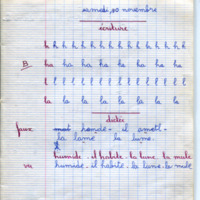 samedi, 20 novembre
écriture
h h h h h h h h h h h h
B ha ha ha ha ha ha ha
l l l l l l l l l l l l l
la la la la la la la la
dictée
faux monde. il
la lame la lune.
humide. il habite. la lune. la mule
vu humide. il habite. la lune. la mule